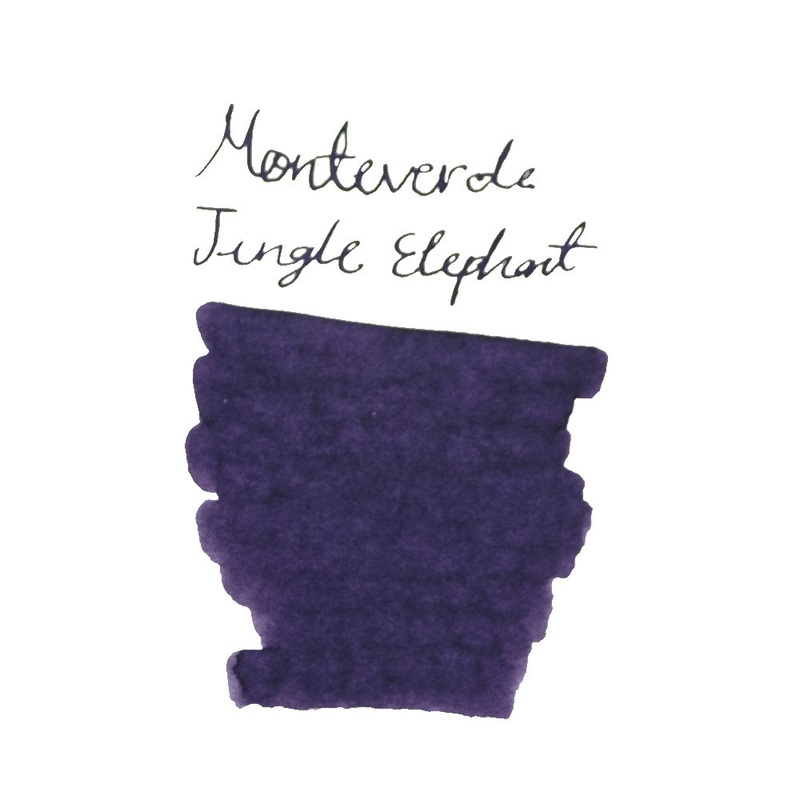 Monteverde
Jungle Elephant